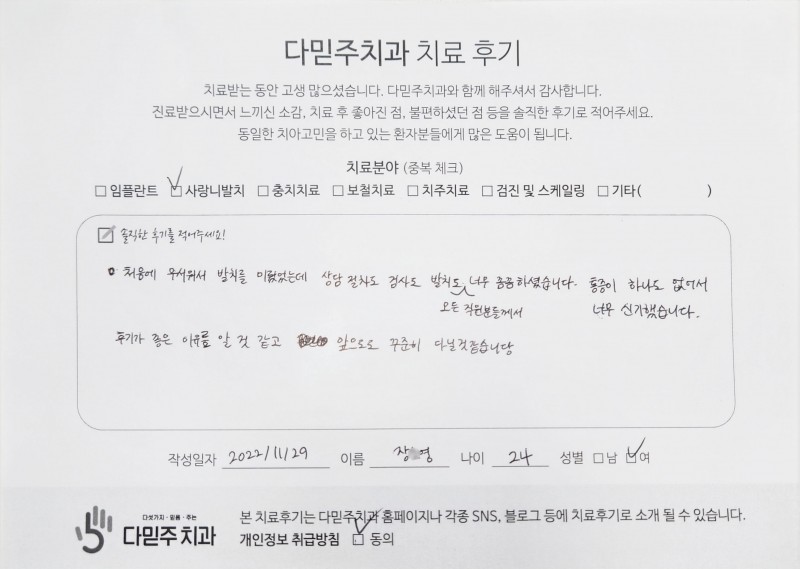 다믿주치과 치료 후기
치료받는 동안 고생 많으셨습니다. 다믿주치과와 함께 해주셔서 감사합니다.
진료받으시면서 느끼신 소감, 치료 후 좋아진 점, 불편하셨던 점 등을 솔직한 후기로 적어주세요.
동일한 치아고민을 하고 있는 환자분들에게 많은 도움이 됩니다.
치료분야 (중복 체크)
☐ 임플란트 ☑ 사랑니발치 ☐ 충치치료 ☐ 보철치료 ☐ 치주치료 ☐ 검진 및 스케일링 ☐ 기타( )
솔직한 후기를 적어주세요!
처음에 무서워서 발치를 미뤘었는데 상담 절차도 검사도 발치도 너무 꼼꼼하셨습니다. 통증이 하나도 없어서
모든 직원분들께서 너무 신기했습니다.
후기가 좋은 이유를 알 것 같고 앞으로도 꾸준히 다닐것같습니당
작성일자 2022/11/29 이름 장 영 나이 24 성별 ☐남 ☑여
다섯가지·믿음·주는
다믿주치과
본 치료후기는 다믿주치과 홈페이지나 각종 SNS, 블로그 등에 치료후기로 소개 될 수 있습니다.
개인정보 취급방침 ☑ 동의